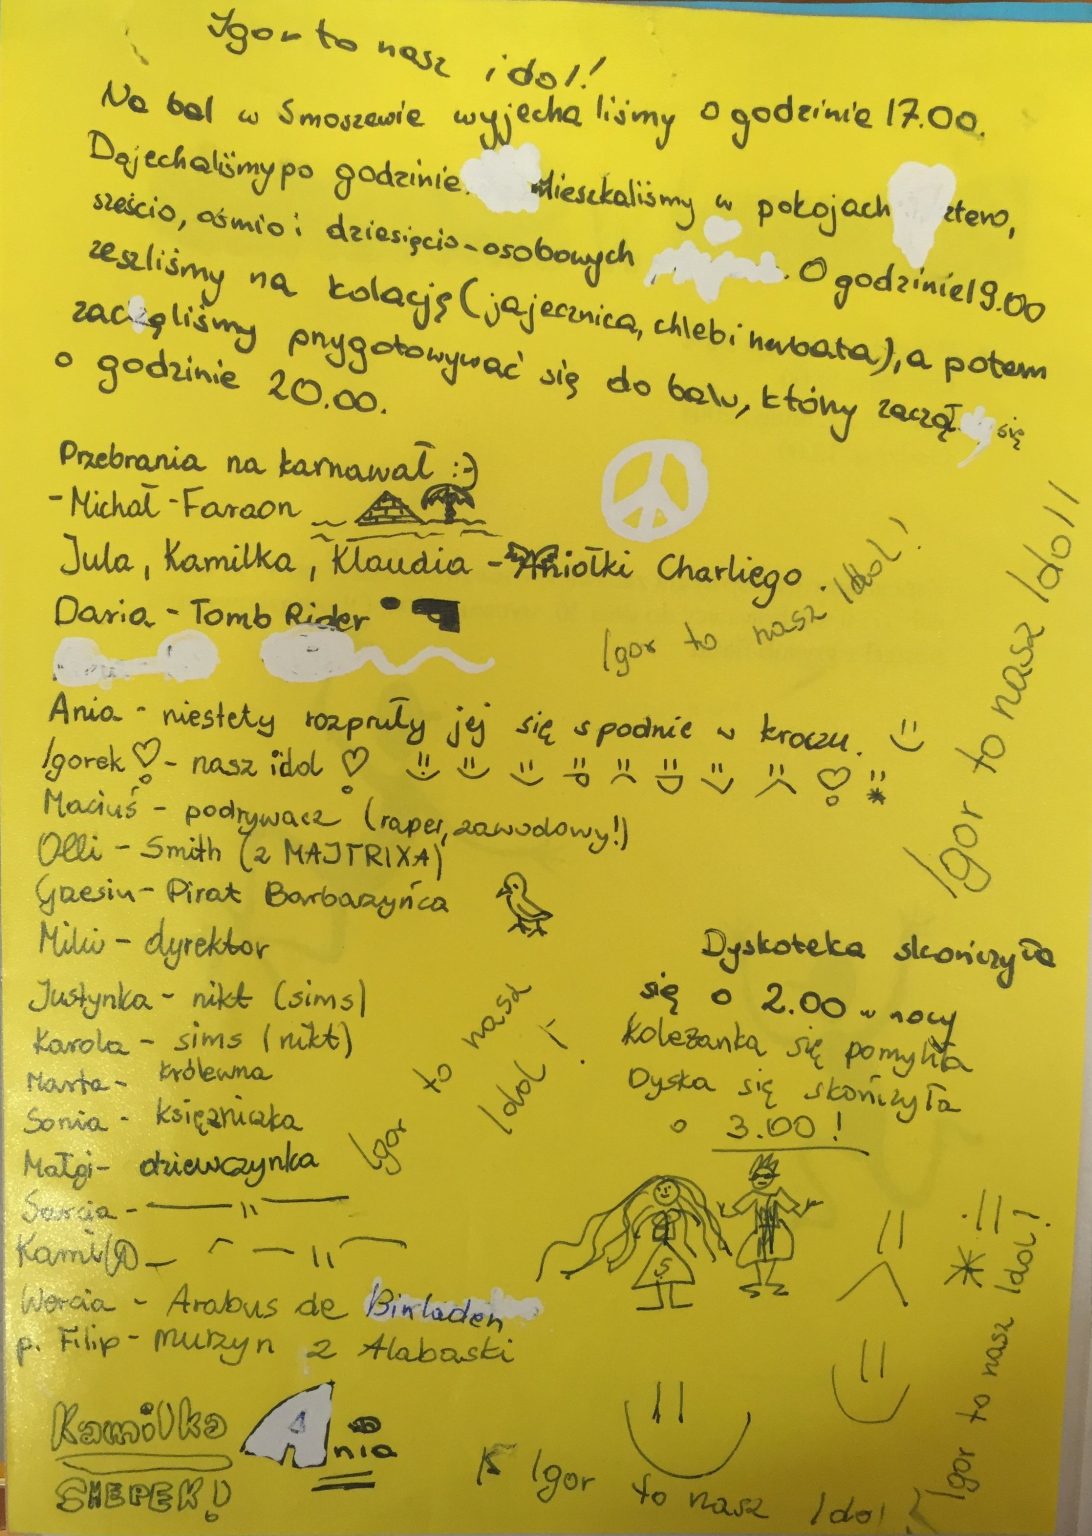 Igor to nasz idol!
Na bal w Smoszewie wyjechaliśmy o godzinie 17.00.
Dojechaliśmy po godzinie. Mieszkaliśmy w pokojach cztero,
sześcio, ośmio i dziesięcio-osobowych. O godzinie 19.00
zeszliśmy na kolację (jajecznica, chleb i herbata), a potem
zaczęliśmy przygotowywać się do balu, który zaczął się
o godzinie 20.00.
Przebrania na karnawał :-)
- Michał - Faraon
Jula, Kamilka, Klaudia - Aniołki Charliego.
Daria - Tomb Rider
Igor to nasz Idol!
Igor to nasz Idol!!
Ania - niestety rozpruły jej się spodnie w kroczu.
Igorek - nasz idol
Maciuś - podrywacz (raper, zawodowy!)
Olli - Smith (z MAJTRIXA)
Grzesiu - Pirat Barbarzyńca
Miliu - dyrektor
Justynka - nikt (sims)
Karola - sims (nikt)
Marta - królewna
Sonia - księżniczka
Małgi - dziewczynka
Sarcia - — 11 —
Kamil - — 11 —
Wercia - Arabus de Binladen
p. Filip - murzyn z Alabaski
Igor to nasz
Idol!
Dyskoteka skończyła
się o 2.00 w nocy
Koleżanka się pomyliła
Dyska się skończyła
o 3.00!
S
Kamilka
SHEPEK!
Ania
Igor to nasz Idol
Igor to nasz Idol!